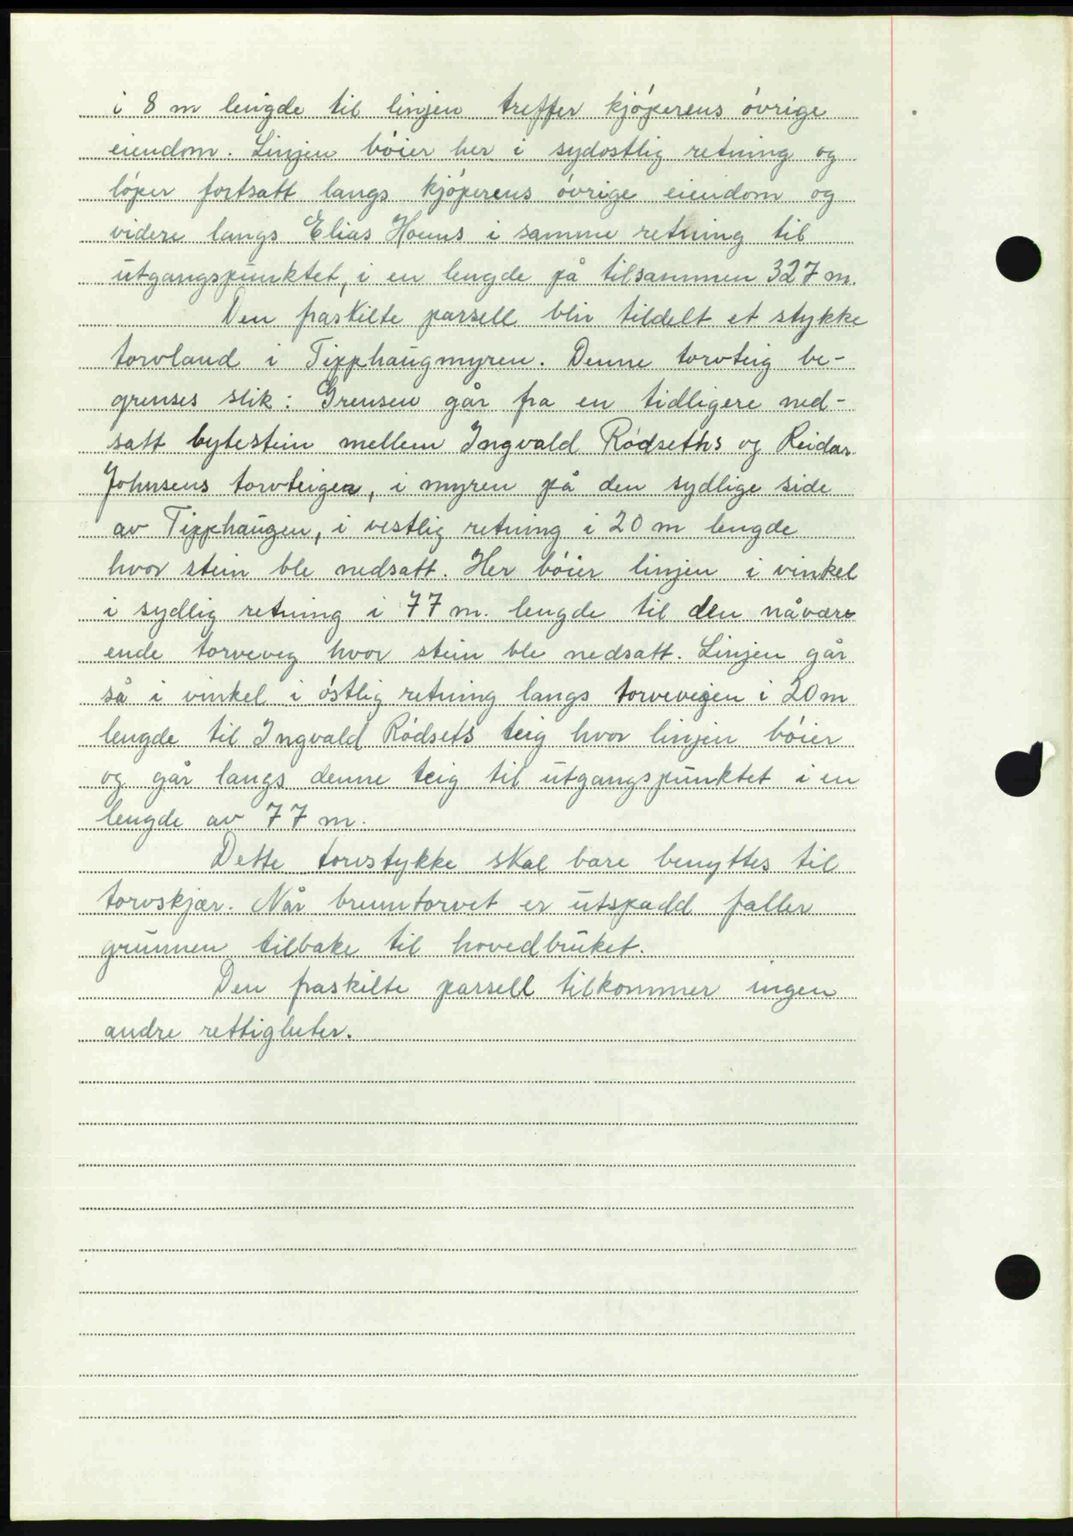 i 8 m lengde til linjen treffer kjöperens övrige
eiendom. Linjen böier her i sydostlig retning og
löper fortsatt langs kjöperens övrige eiendom og
videre langs Elias Hoems i samme retning til
utgangspunktet, i en lengde på tilsammen 327 m.
Den fraskilte parsell blir tildelt et stykke
torvland i Tipphaugmyren. Denne torvteig be-
grenses slik: Grensen går fra en tidligere ned-
satt bytestein mellem Ingvald Rödseths og Reidar
Johnsens torvteiger, i myren på den sydlige side
av Tipphaugen, i vestlig retning i 20 m lengde
hvor stein ble nedsatt. Her böier linjen i vinkel
i sydlig retning i 77 m. lengde til den nåvær
ende torveveg hvor stein ble nedsatt. Linjen går
så i vinkel i östlig retning langs torveveien i 20 m
lengde til Ingvald Rödsets teig hvor linjen böier
og går langs denne teig til utgangspunktet i en
lengde av 77 m.
Dette torvstykke skal bare benyttes til
torvskjær. Når brenntorvet er utspadd faller
grunnen tilbake til hovedbruket.
Den fraskilte parsell tilkommer ingen
andre rettigheter.